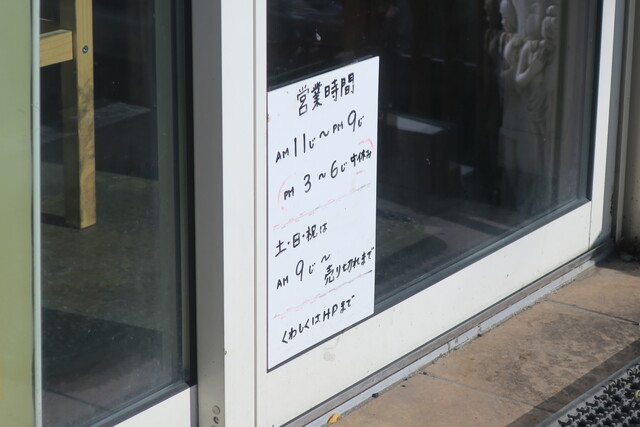 営業時間
AM 11じ〜PM 9じ
PM 3〜6じ 中休み
土・日・祝は
AM 9じ〜
売り切れまで
くわしくはHPまで